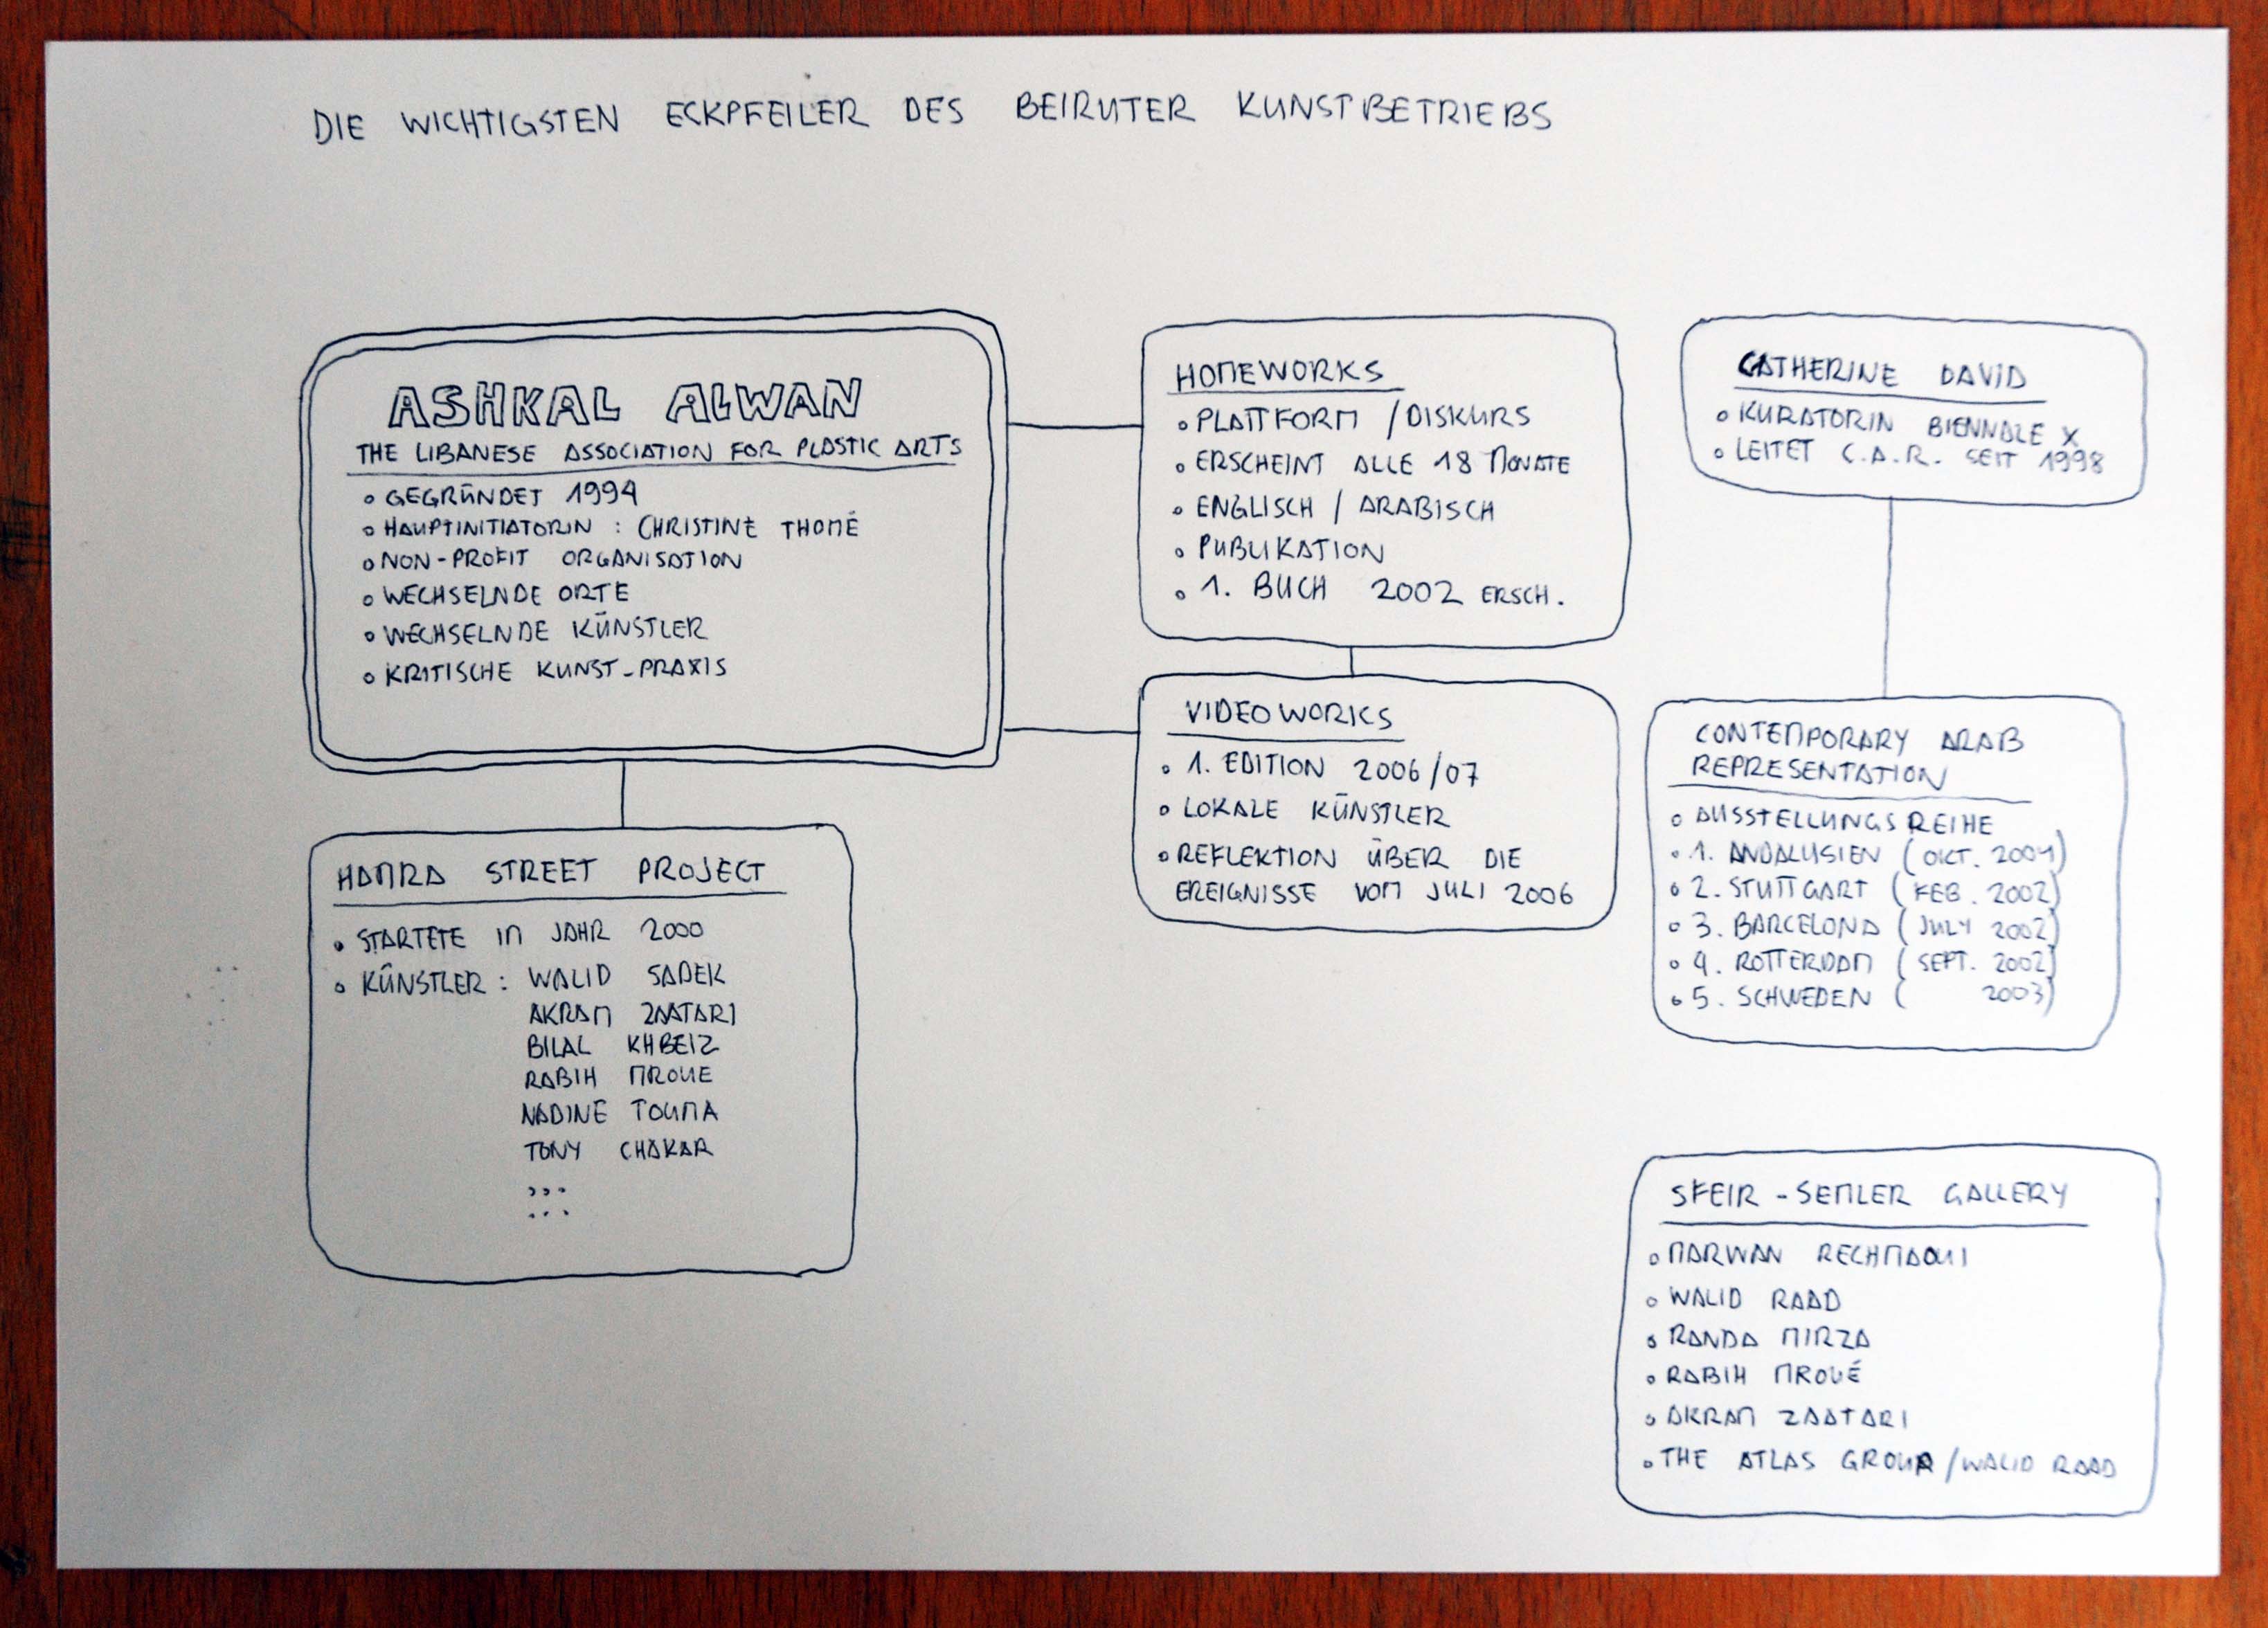 DIE WICHTIGSTEN ECKPFEILER DES BEIRUTER KUNSTBETRIEBS
ASHKAL ALWAN
THE LIBANESE ASSOCIATION FOR PLASTIC ARTS
GEGRÜNDET 1994
HAUPTINITIATORIN : CHRISTINE THOMÉ
NON-PROFIT ORGANISATION
WECHSELNDE ORTE
WECHSELNDE KÜNSTLER
KRITISCHE KUNST-PRAXIS
HAMRA STREET PROJECT
STARTETE IM JAHR 2000
KÜNSTLER : WALID SADEK
AKRAM ZAATARI
BILAL KHBEIZ
RABIH MROUE
NADINE TOUMA
TONY CHAKAR
HOMEWORKS
PLATTFORM / DISKURS
ERSCHEINT ALLE 18 MONATE
ENGLISCH / ARABISCH
PUBLIKATION
1. BUCH 2002 ERSCH.
VIDEOWORKS
1. EDITION 2006/07
LOKALE KÜNSTLER
REFLEKTION ÜBER DIE
EREIGNISSE VOM JULI 2006
CATHERINE DAVID
KURATORIN BIENNALE X
LEITET C.A.R. SEIT 1998
CONTEMPORARY ARAB
REPRESENTATION
AUSSTELLUNGSREIHE
1. ANDALUSIEN (OKT. 2001)
2. STUTTGART (FEB. 2002)
3. BARCELONA (JULY 2002)
4. ROTTERDAM (SEPT. 2002)
5. SCHWEDEN ( 2003)
SFEIR-SEMLER GALLERY
MARWAN RECHMAOUI
WALID RAAD
RANDA MIRZA
RABIH MROUÉ
AKRAM ZAATARI
THE ATLAS GROUP / WALID RAAD